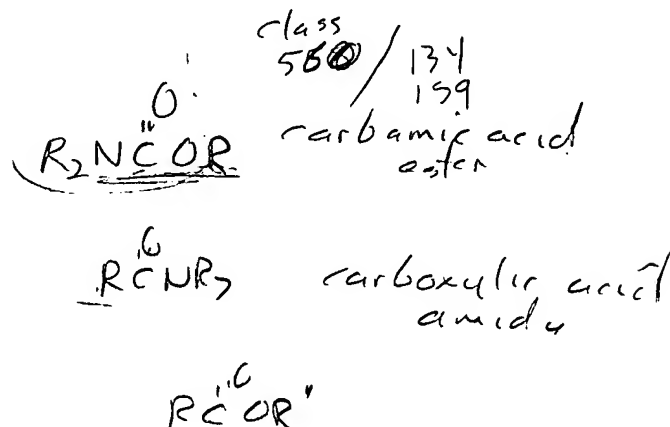 class
/ 134
159
O
"
R₂NCOR carbamic acid
ester
O
"
RCNR₂ carboxylic acid
amide
O
"
RCOR'